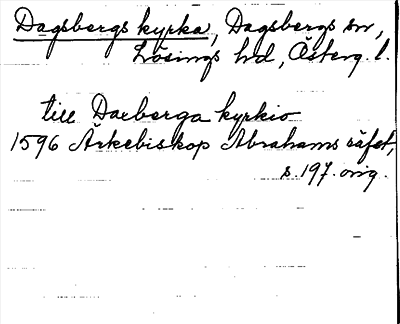 Dagsbergs kyrka, Dagsbergs sn,
Lösings hd, Österg. l.
till Daxberga kyrkio
1596 Ärkebiskop Abrahams räfst,
s. 197. orig.